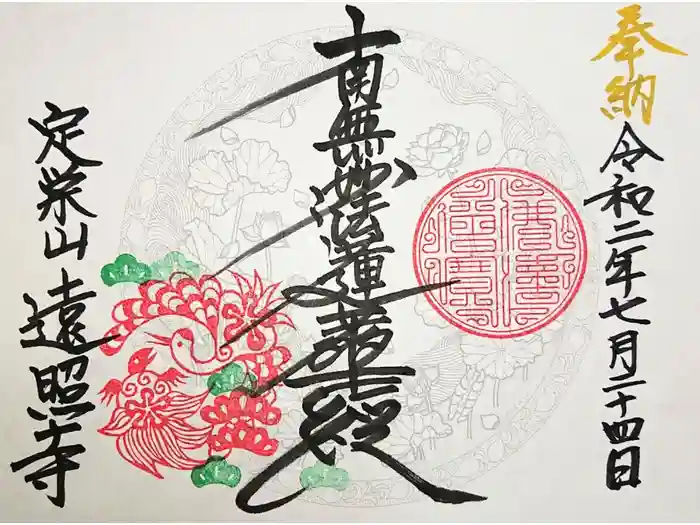 奉納
令和二年七月二十四日
南無妙法蓮華経
定栄山
遠照寺